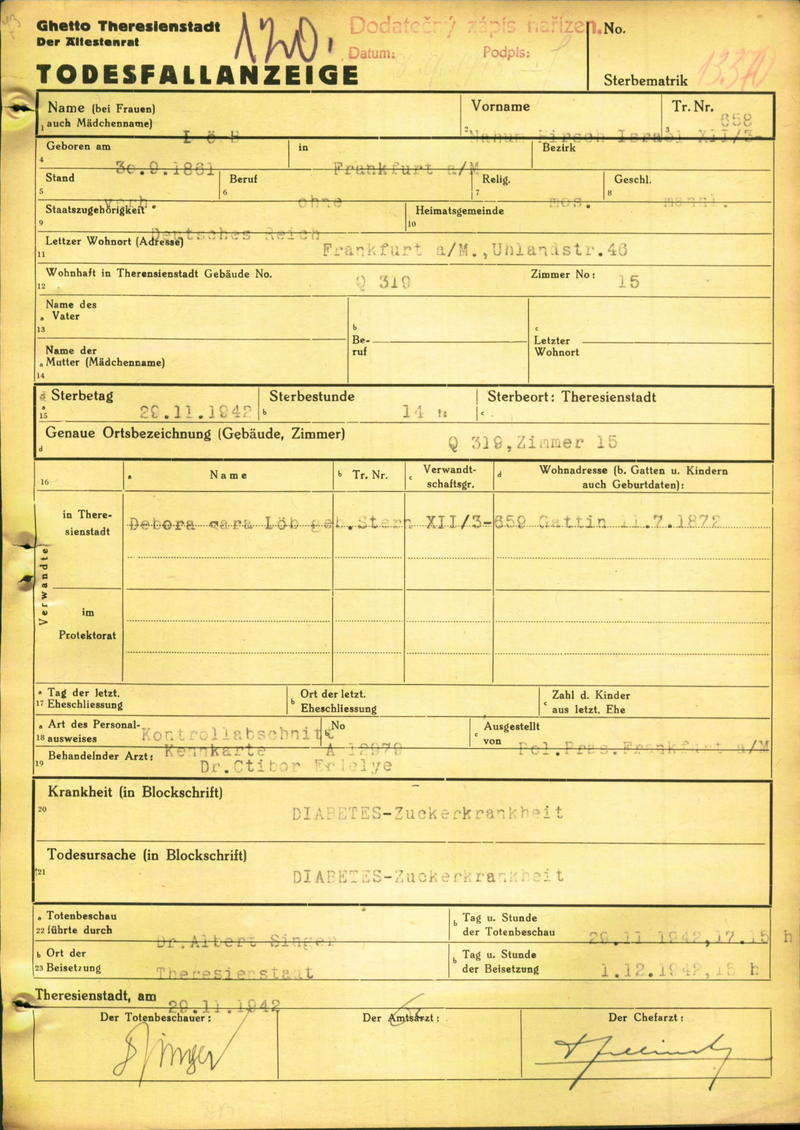 Ghetto Theresienstadt
Der Ältestenrat
TODESFALLANZEIGE
Dodatečný zápis nařízen.
Datum: Podpis:
No.
Sterbematrik 13.370
Name (bei Frauen) Vorname Tr. Nr.
1 auch Mädchenname) 2 3 658
L ö b Hirsch Israel XII/3-
Geboren am in Bezirk
4 30.9.1861 Frankfurt a/M
Stand Beruf Relig. Geschl.
5 6 ohne 7 mos. 8 männl.
Staatszugehörigkeit Heimatsgemeinde
9 Deutsches Reich 10
Lettzer Wohnort (Adresse)
11 Frankfurt a/M.,Uhlandstr.46
Wohnhaft in Therensienstadt Gebäude No. Q 319 Zimmer No: 15
12
Name des
a Vater b c
13 Be- Letzter
Name der ruf Wohnort
a Mutter (Mädchenname)
14
a Sterbetag Sterbestunde Sterbeort: Theresienstadt
15 29.11.1942 b 14 h c
Genaue Ortsbezeichnung (Gebäude, Zimmer)
d Q 319,Zimmer 15
16 a Name b Tr. Nr. c Verwandt-schaftsgr. d Wohnadresse (b. Gatten u. Kindern auch Geburtdaten):
Verwandte
in There-
sienstadt
Debora Sara Löb geb.Stern XII/3-659 Gattin 11.7.1872
im
Protektorat
a Tag der letzt. Ort der letzt. Zahl d. Kinder
17 Eheschliessung b Eheschliessung c aus letzt. Ehe
a Art des Personal- No Ausgestellt
18 ausweises Kontrollabschnitt b c von
Kennkarte A 12979 Pol.Präs.Frankfurt a/M
19 Behandelnder Arzt: Dr.Ctibor
Krankheit (in Blockschrift)
20 DIABETES-Zuckerkrankheit
Todesursache (in Blockschrift)
21 DIABETES-Zuckerkrankheit
a Totenbeschau b Tag u. Stunde
22 führte durch Dr.Albert Singer der Totenbeschau 29.11 1942,17.15 h
b Ort der b Tag u. Stunde
23 Beisetzung Theresienstadt der Beisetzung 1.12.1942,15 h
Theresienstadt, am 29.11.1942
Der Totenbeschauer: Der Amtsarzt: Der Chefarzt:
Singer